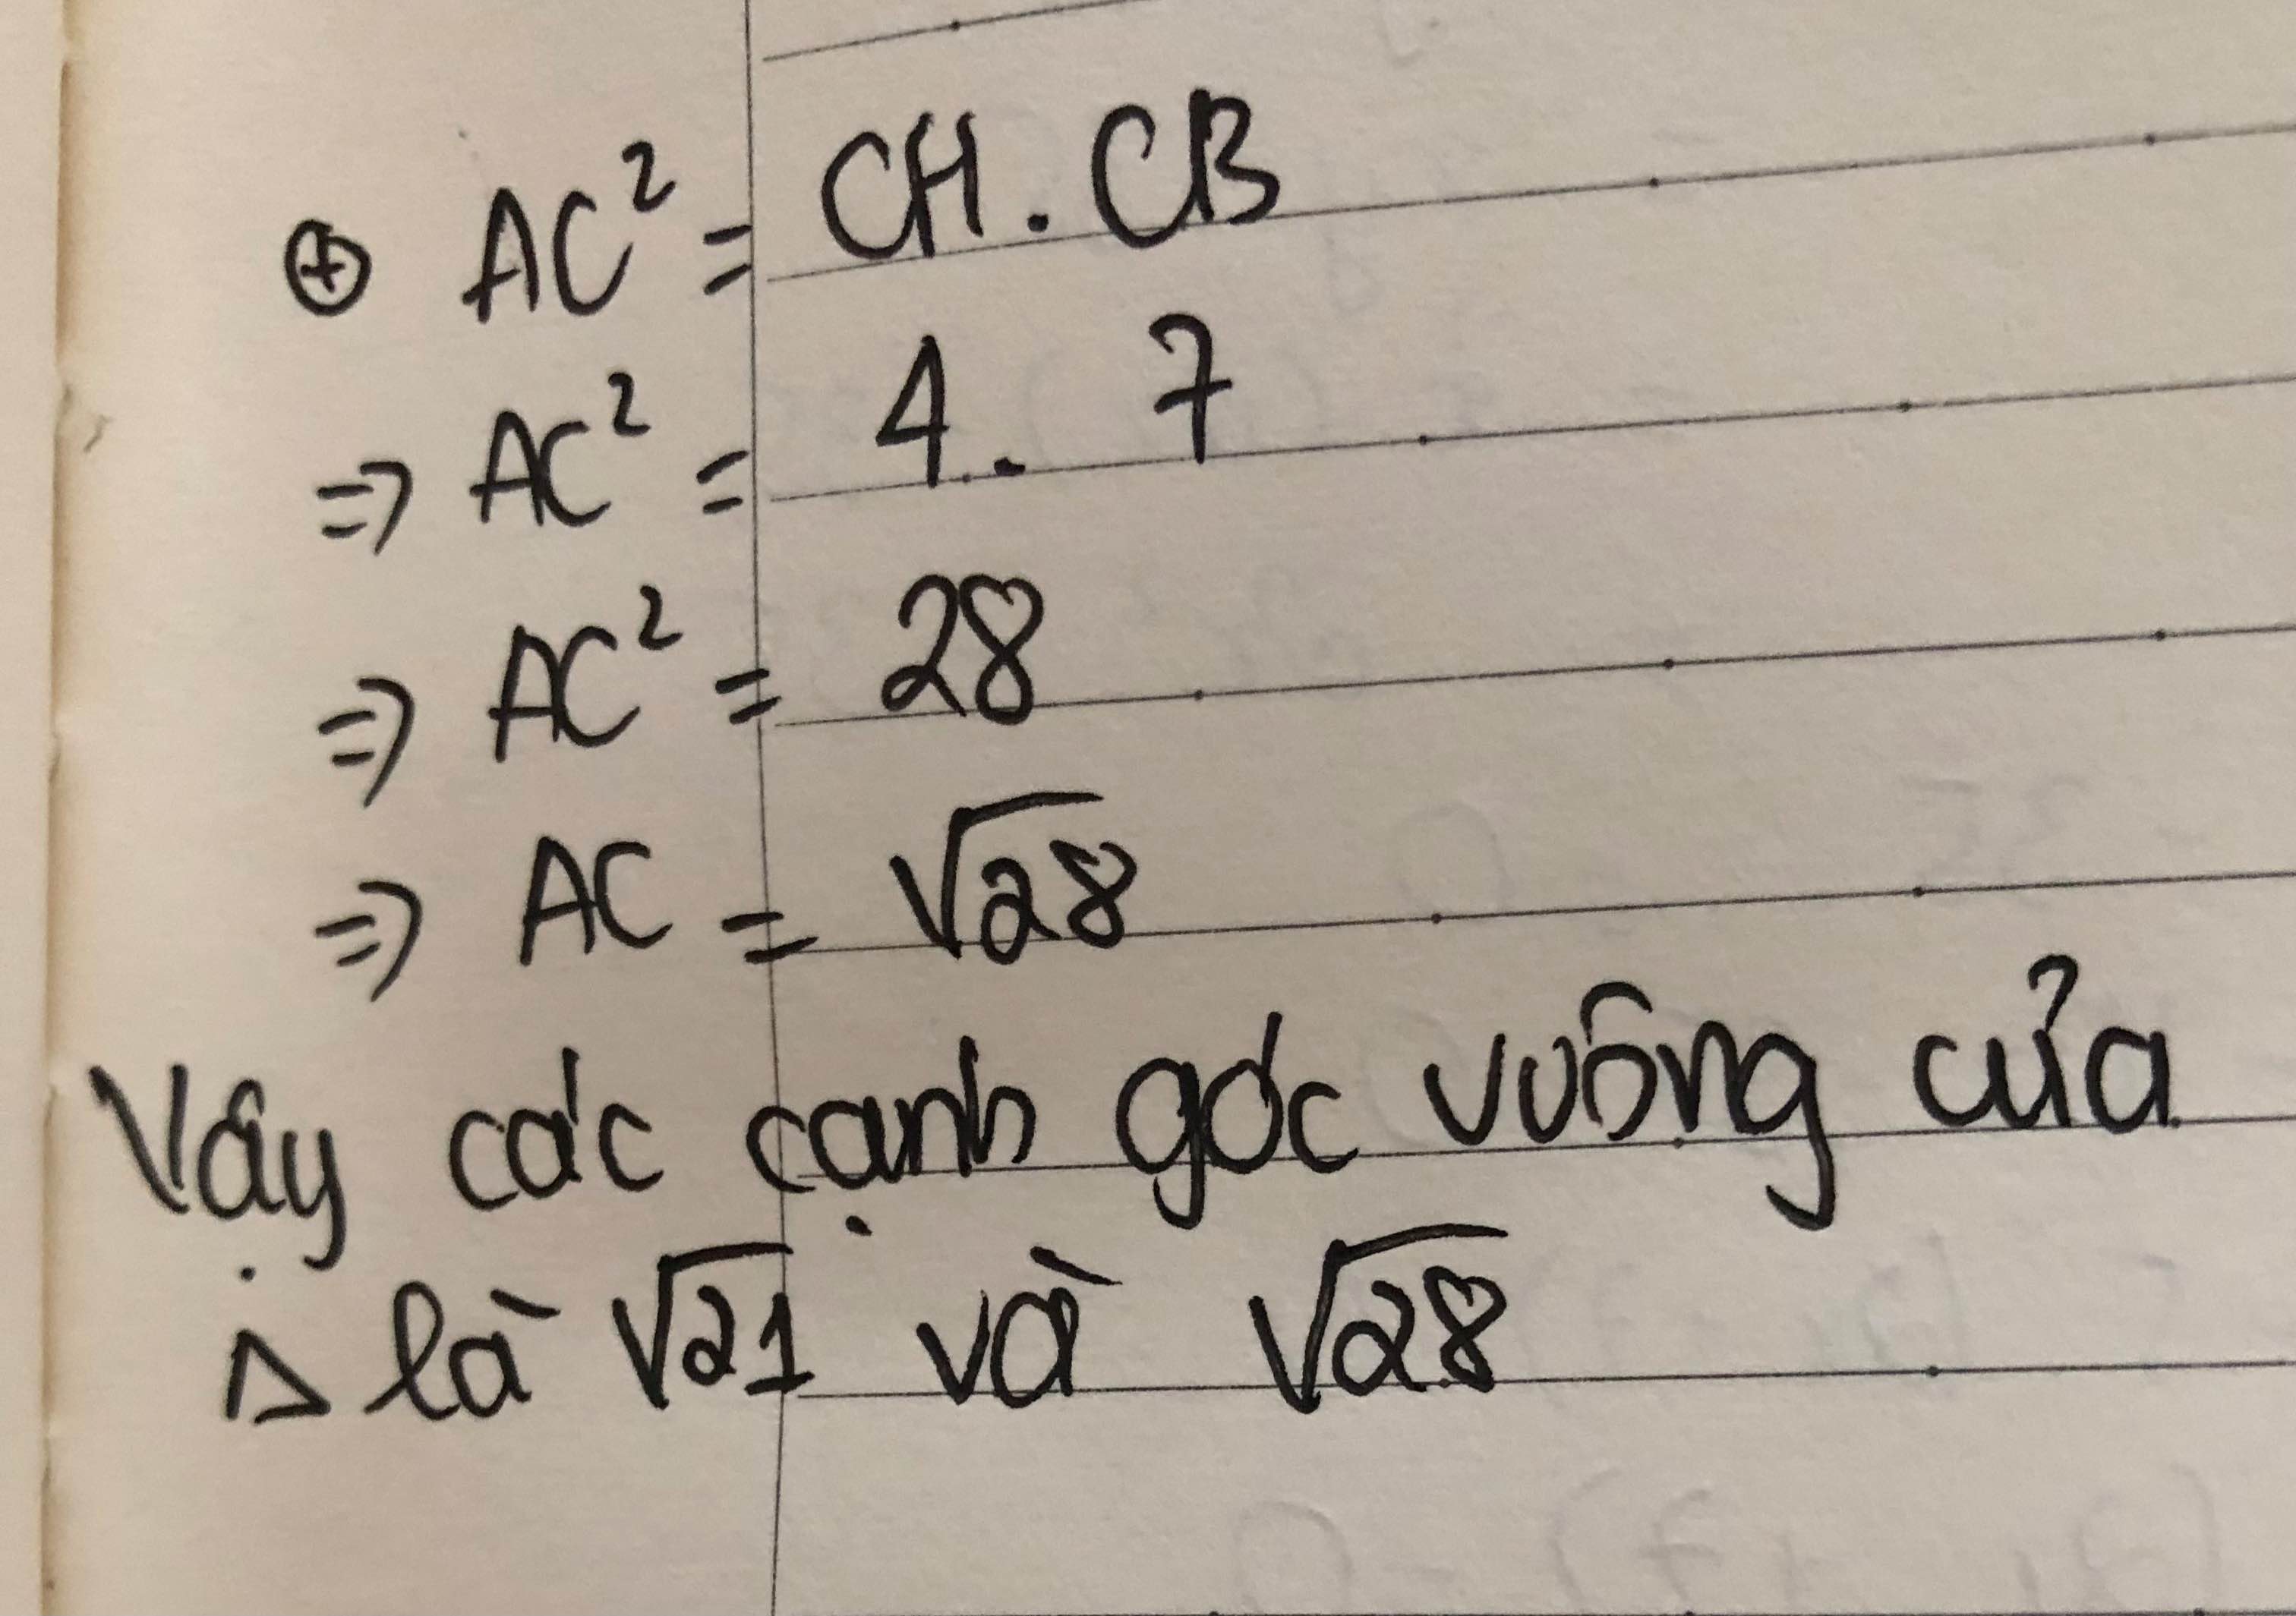 ⊕ AC² = CH . CB
=> AC² = 4 . 7
=> AC² = 28
=> AC = √28
Vậy các cạnh góc vuông của
Δ là √21 và √28